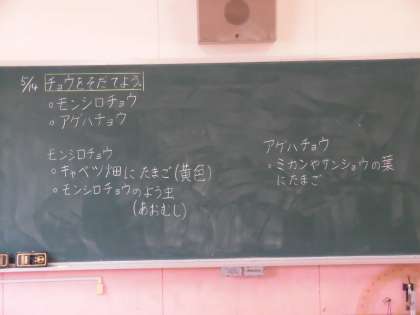 5/14 チョウをそだてよう。
○モンシロチョウ
○アゲハチョウ
モンシロチョウ
○キャベツ畑にたまご(黄色)
○モンシロチョウのよう虫
(あおむし)
アゲハチョウ
○ミカンやサンショウの葉
にたまご